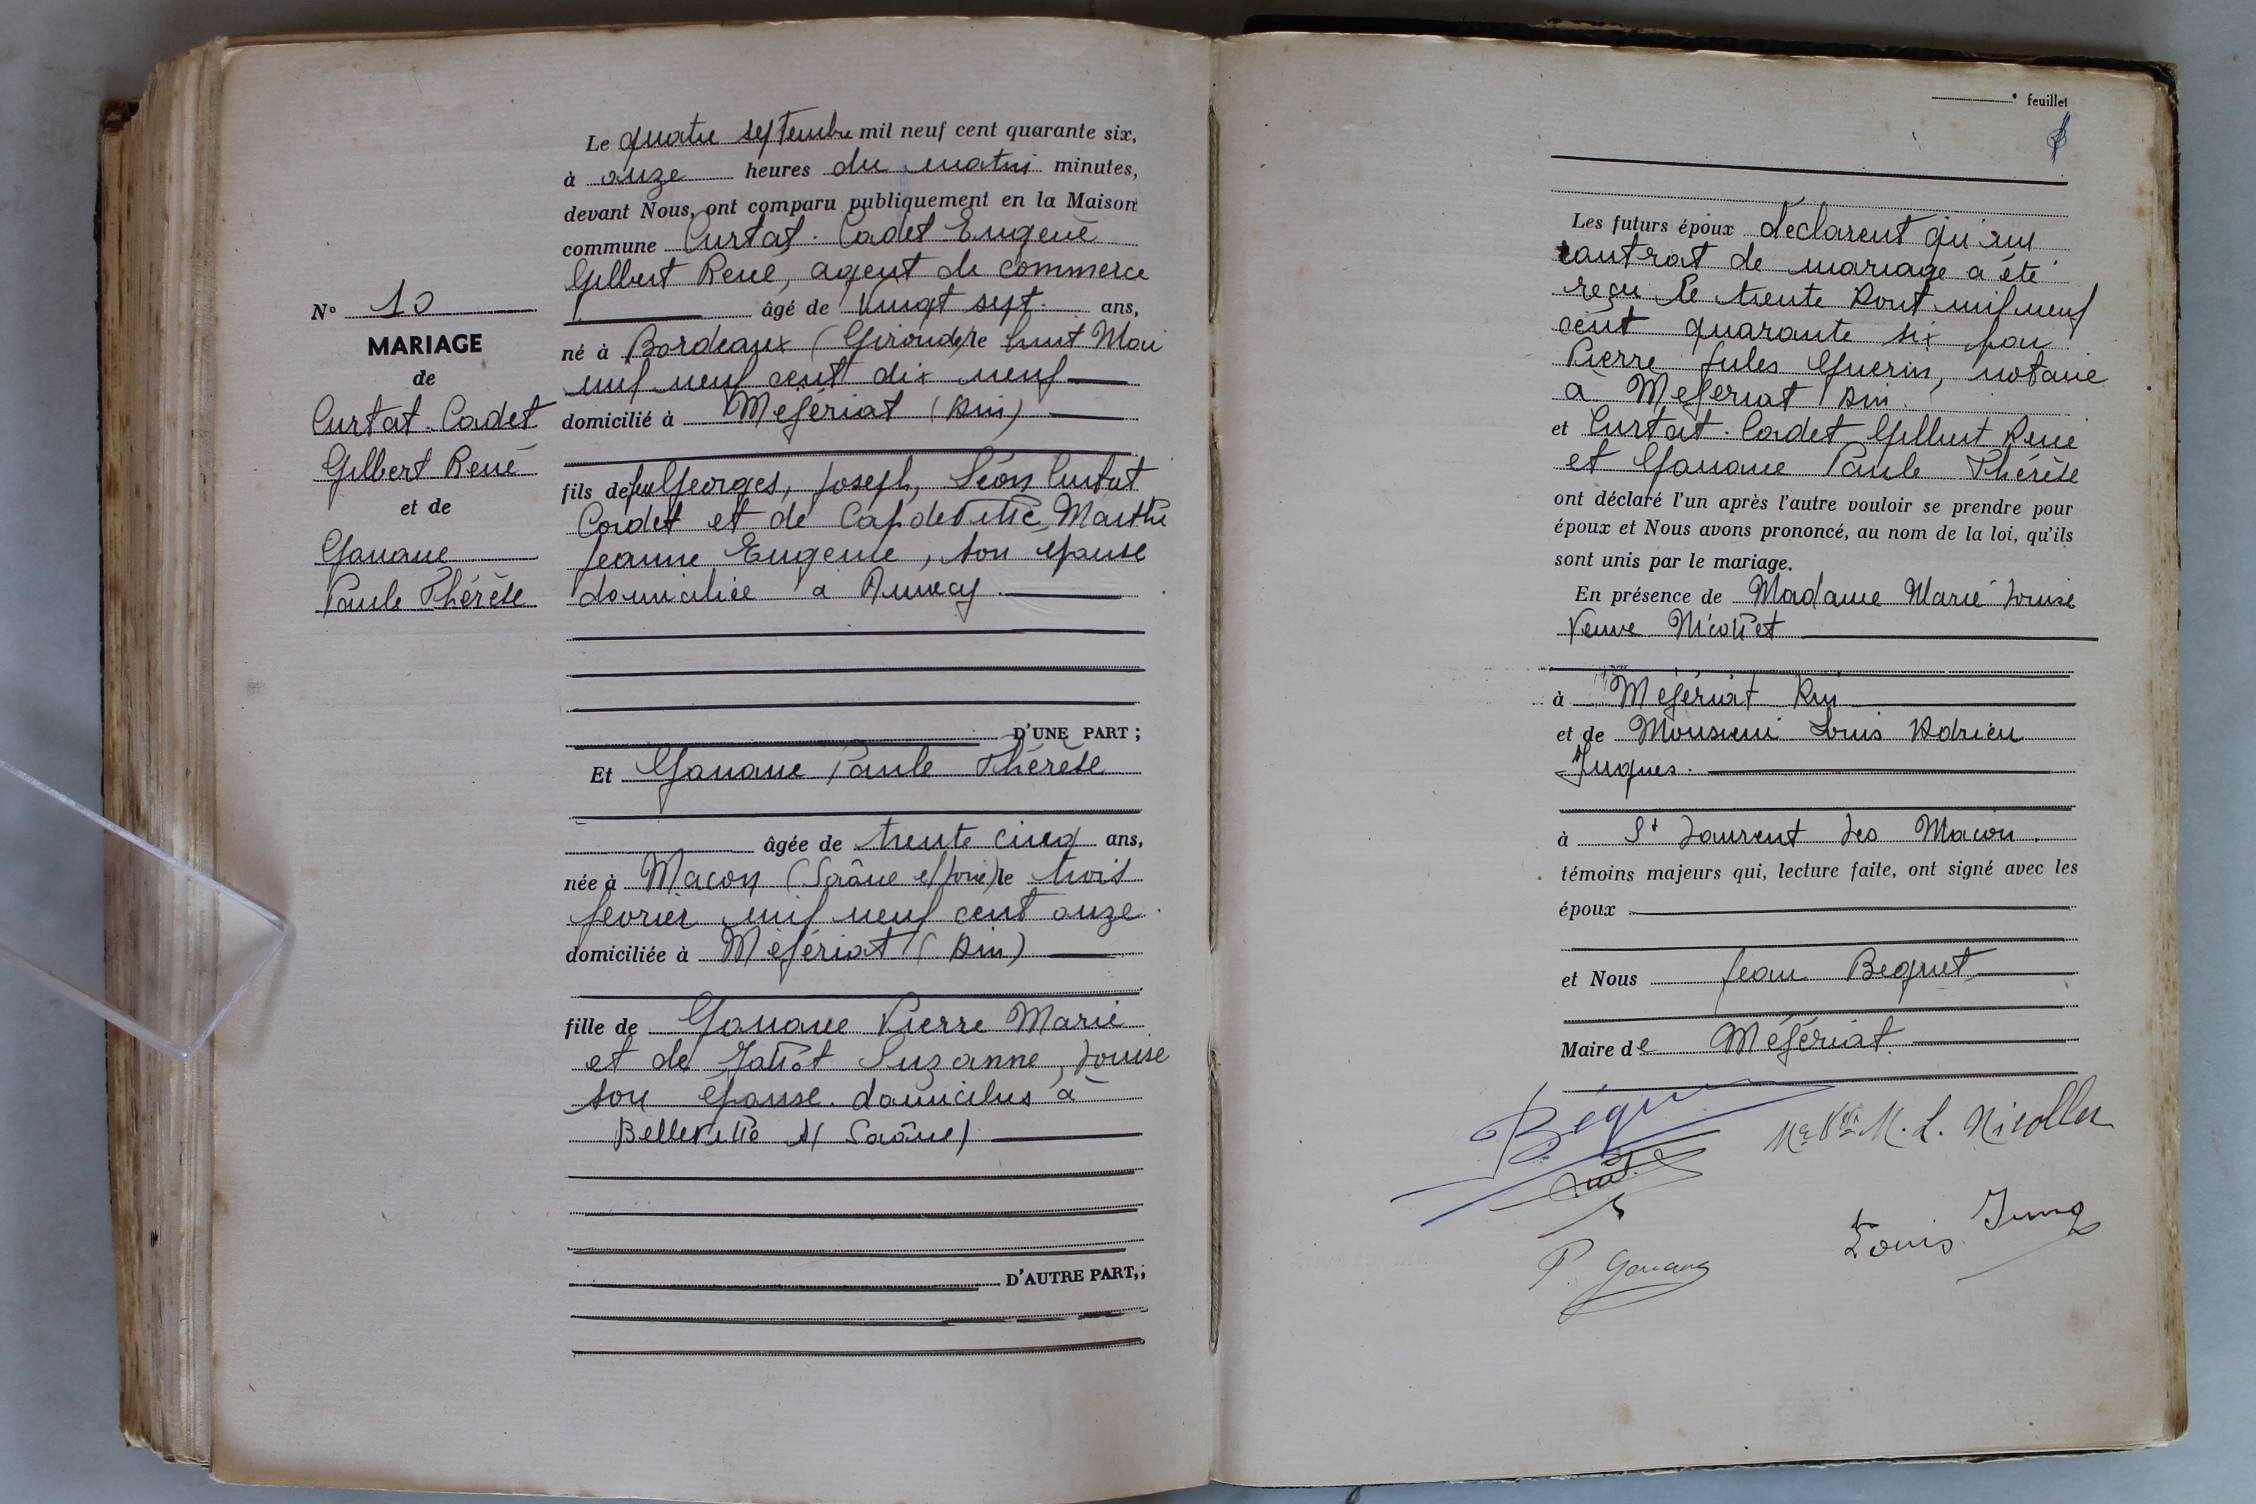 N° 10
MARIAGE
de
Curtat-Cadet
Gilbert René
et de
Gonaue
Paule Thérèse
Le quatre septembre mil neuf cent quarante six,
à onze heures du matin minutes,
devant Nous, ont comparu publiquement en la Maison
commune Curtat-Cadet Eugène
Gilbert René, agent de commerce
âgé de vingt sept ans,
né à Bordeaux (Gironde) le huit Mai
mil neuf cent dix neuf
domicilié à Mézériat (Ain)
fils de feu Georges, Joseph, Léon Curtat
Cadet et de Capdeville Marthe
Jeanne Eugenie, son épouse
domiciliée à Annecy
D'UNE PART ;
Et Gonaue Paule Thérèse
âgée de trente cinq ans,
née à Macon (Saône et Loire) le trois
fevrier mil neuf cent onze
domiciliée à Mézériat (Ain)
fille de Gonaue Pierre Marie
et de Suzanne, Louise
son épouse domiciliés à
Belleville s/ Saône)
D'AUTRE PART,;
feuillet
Les futurs époux déclarent qu'un
contrat de mariage a été
reçu le trente Aout mil neuf
cent quarante six par
Pierre Jules Guerin, notaire
à Mézériat Ain.
et Curtat-Cadet Gilbert René
et Gonaue Paule Thérèse
ont déclaré l'un après l'autre vouloir se prendre pour
époux et Nous avons prononcé, au nom de la loi, qu'ils
sont unis par le mariage.
En présence de Madame Marie Louise
Veuve Nicollet
à Mézériat Ain
et de Monsieur Louis Adrien
à St Laurent les Macon.
témoins majeurs qui, lecture faite, ont signé avec les
époux
et Nous Jean Beguet
Maire de Mézériat.
Bégu
Me Vve M. L. Nicollet
P. Gonaue
Louis